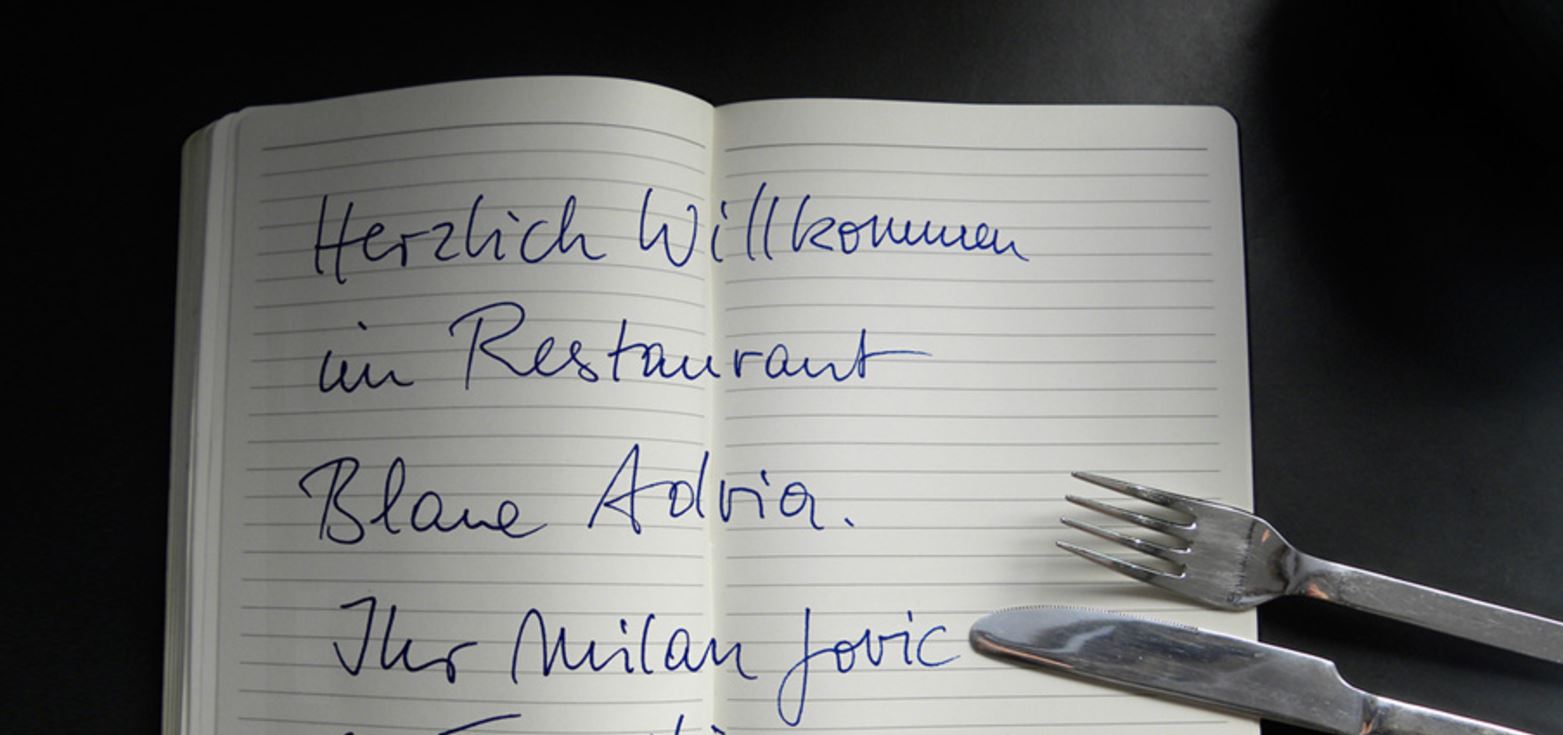 Herzlich Willkommen
im Restaurant
Blaue Adria.
Ihr Milan Jovic